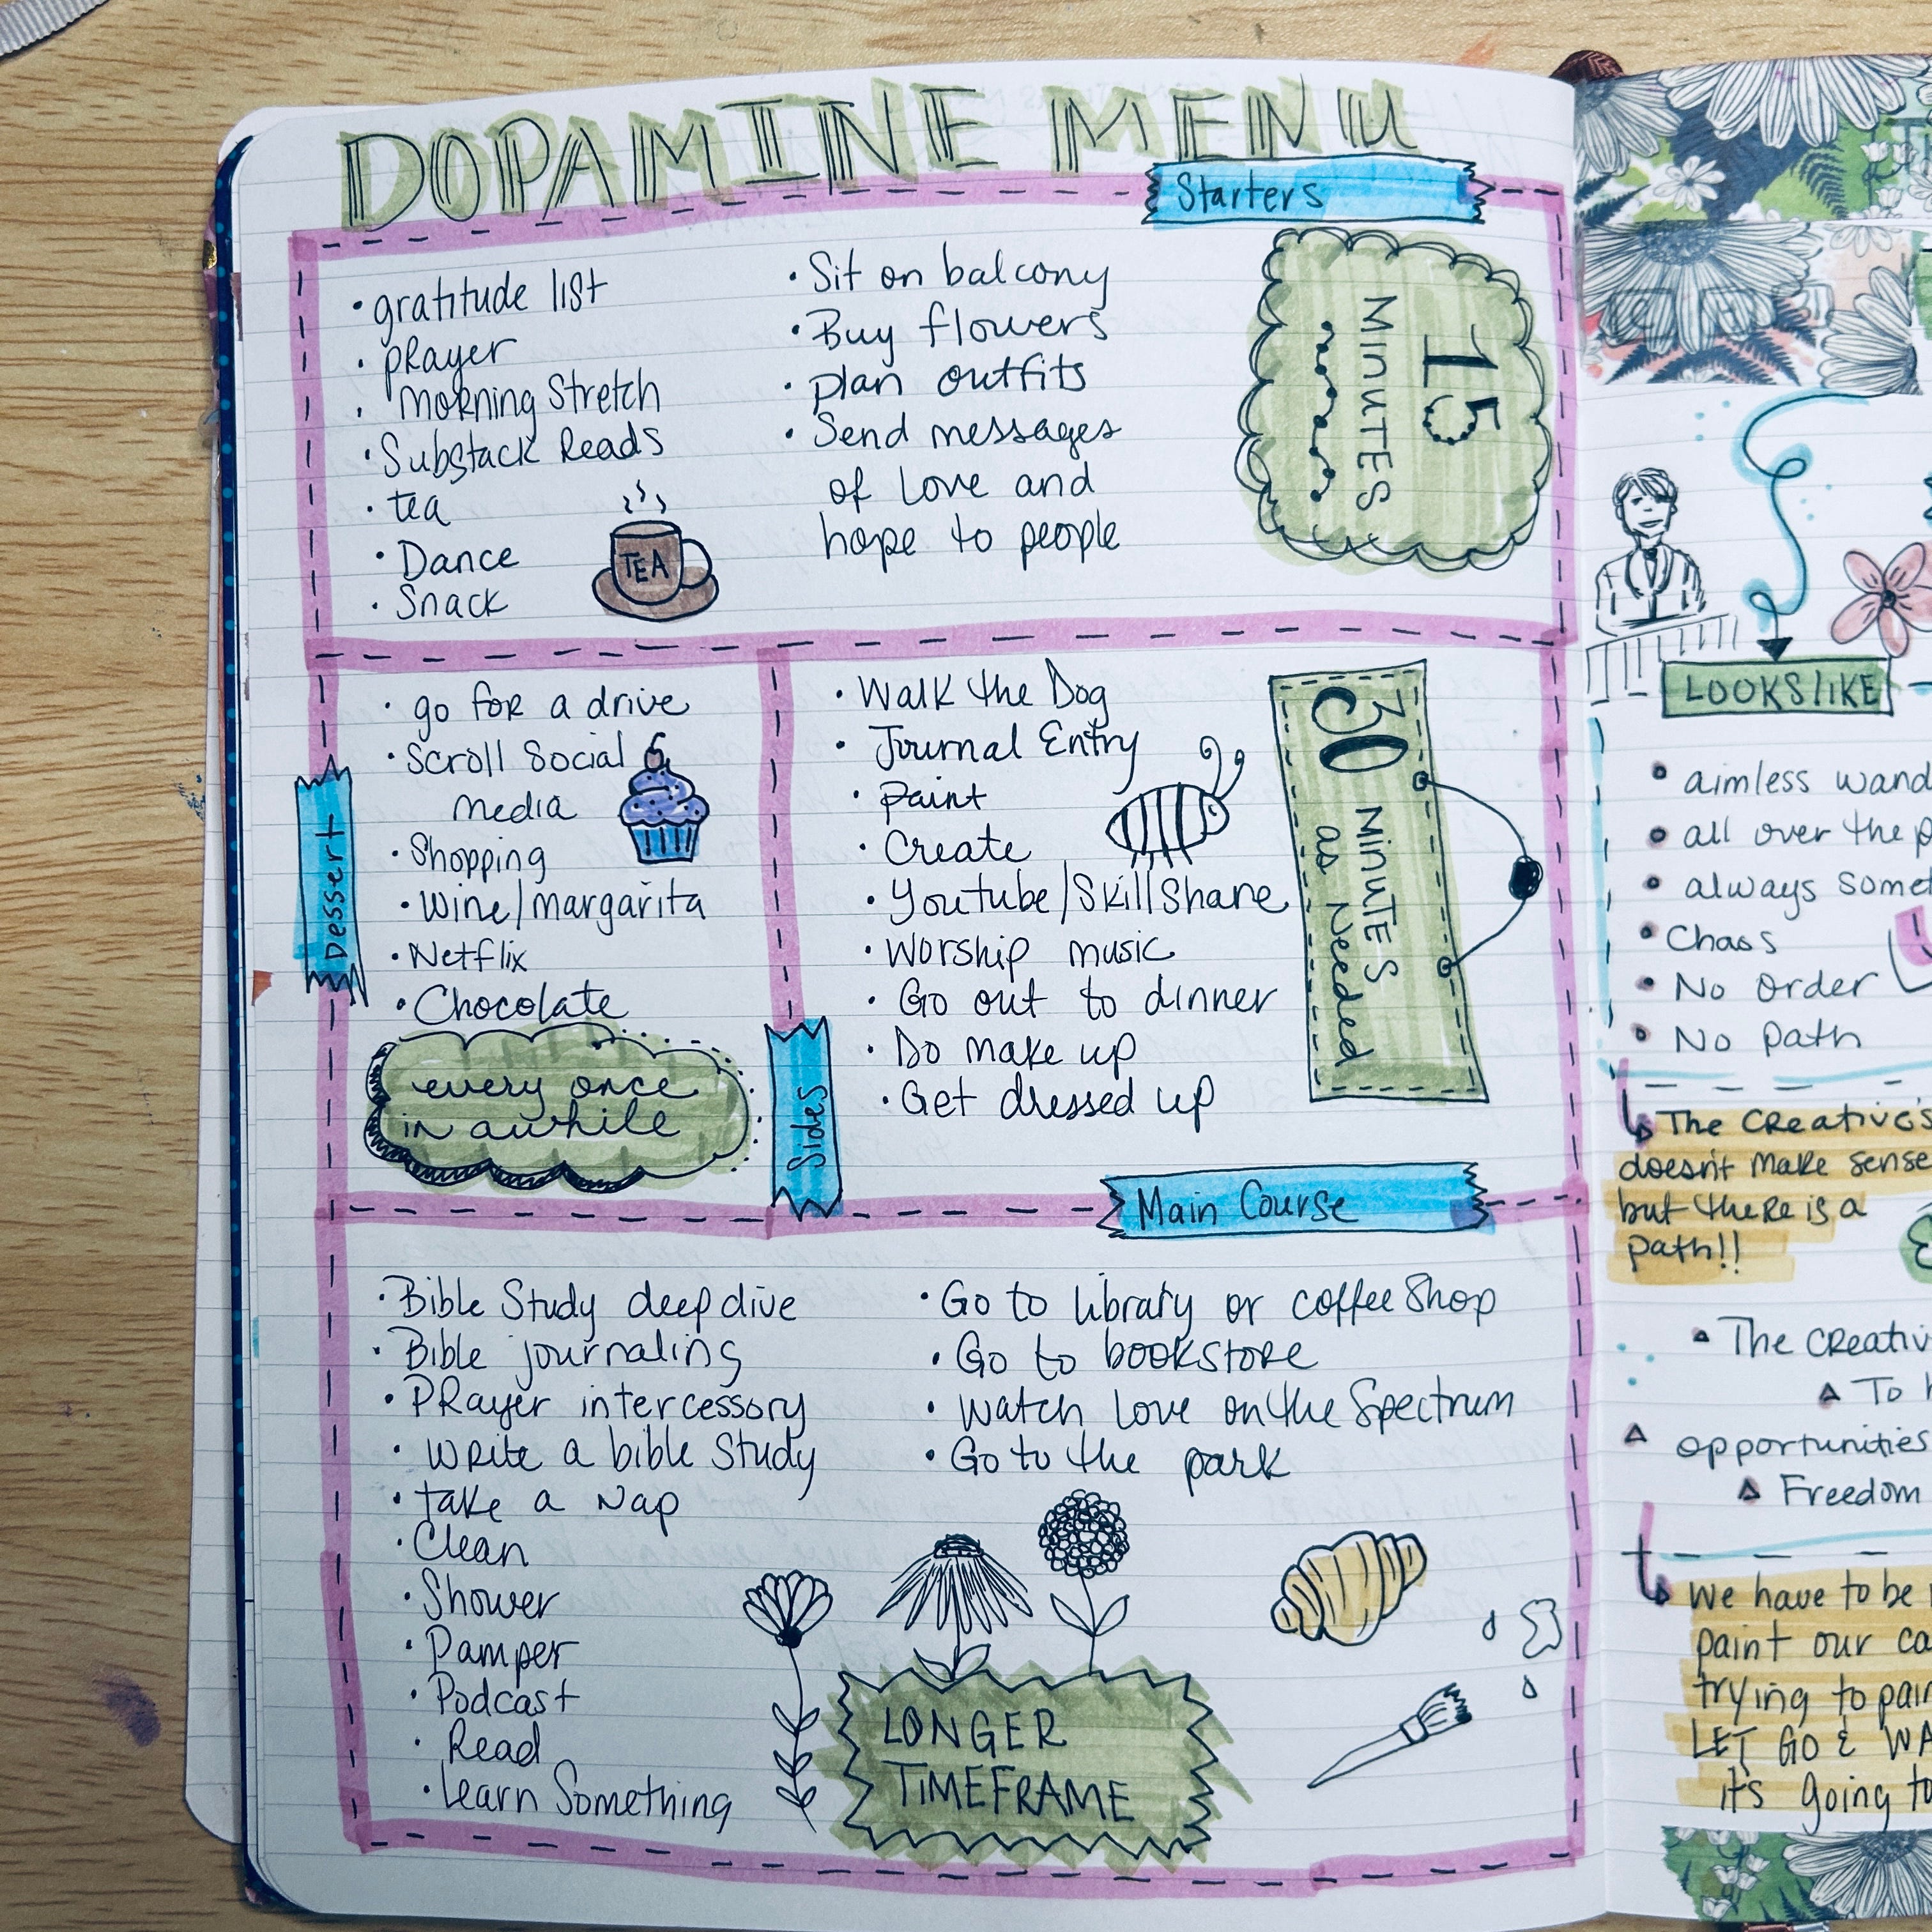 DOPAMINE MENU
Starters
• gratitude list
• prayer
• morning Stretch
• Substack Reads
• tea
• Dance
• Snack
TEA
• Sit on balcony
• Buy flowers
• plan outfits
• Send messages
of Love and
hope to people
15
MINUTES
Dessert
• go for a drive
• Scroll Social
media
• Shopping
• Wine/margarita
• Netflix
• Chocolate
every once
in awhile
Sides
• Walk the Dog
• Journal Entry
• Paint
• Create
• Youtube/SkillShare
• Worship music
• Go out to dinner
• Do make up
• Get dressed up
30 MINUTES
as Needed
Main Course
• Bible Study deep dive
• Bible journaling
• PRayer intercessory
• Write a bible Study
• take a Nap
• Clean
• Shower
• Pamper
• Podcast
• Read
• Learn Something
• Go to library or coffee Shop
• Go to bookstore
• Watch Love on the Spectrum
• Go to the park
LONGER
TIMEFRAME
LOOKS LIKE
• aimless wand
• all over the p
• always somet
• Chaos
• No Order
• No path
The Creative's
doesn't make sense
but there is a
path!!
• The Creativ
To
opportunities
Freedom
We have to be
paint our ca
trying to pain
LET GO & WA
it's going to